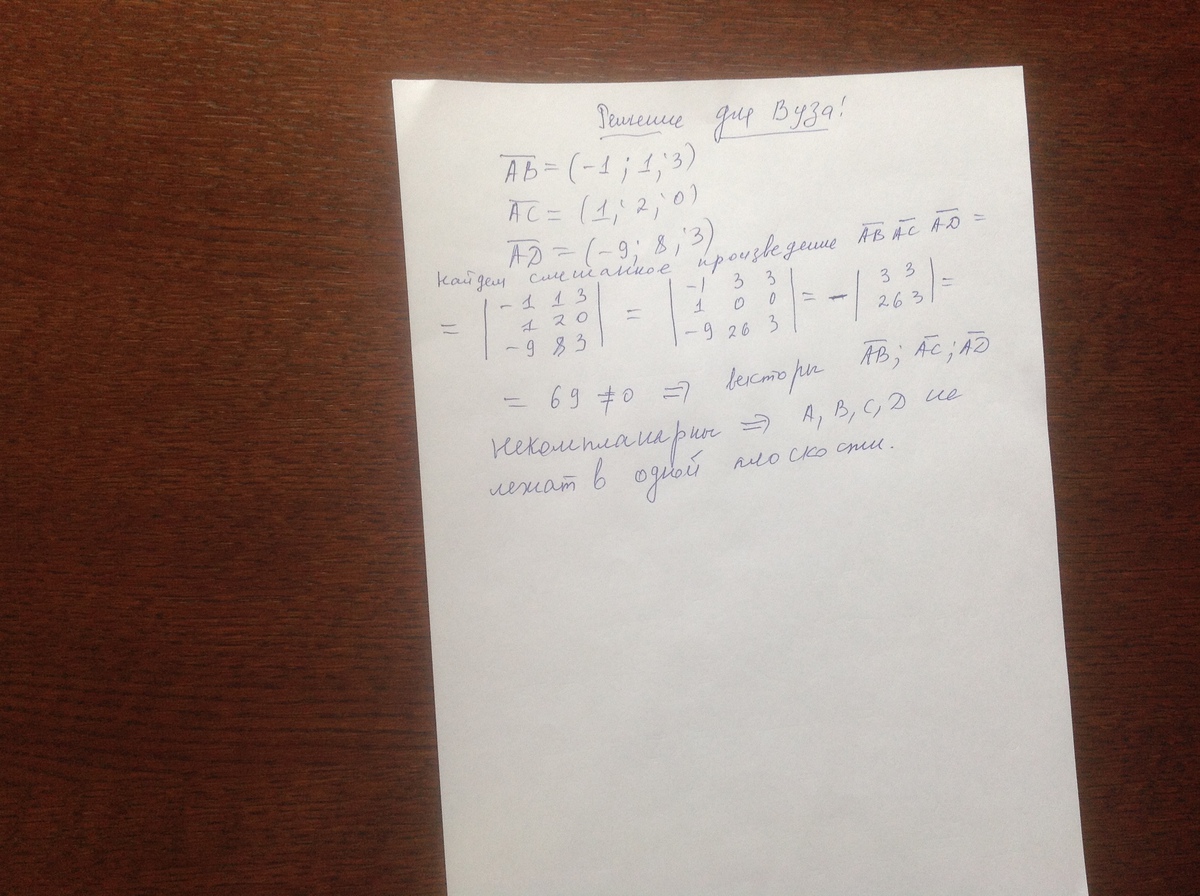 Решение для Вуза!
AB = (-1; 1; 3)
AC = (1; 2; 0)
AD = (-9; 8; 3)
Найдем смешанное произведение AB AC AD =
= | -1 1 3 | = | -1 3 3 | = - | 3 3 | =
| 1 2 0 | | 1 0 0 | | 26 3 |
| -9 8 3 | | -9 26 3 |
= 69 ≠ 0 ⇒ векторы AB; AC; AD
Некомпланарны ⇒ A, B, C, D не
лежат в одной плоскости.